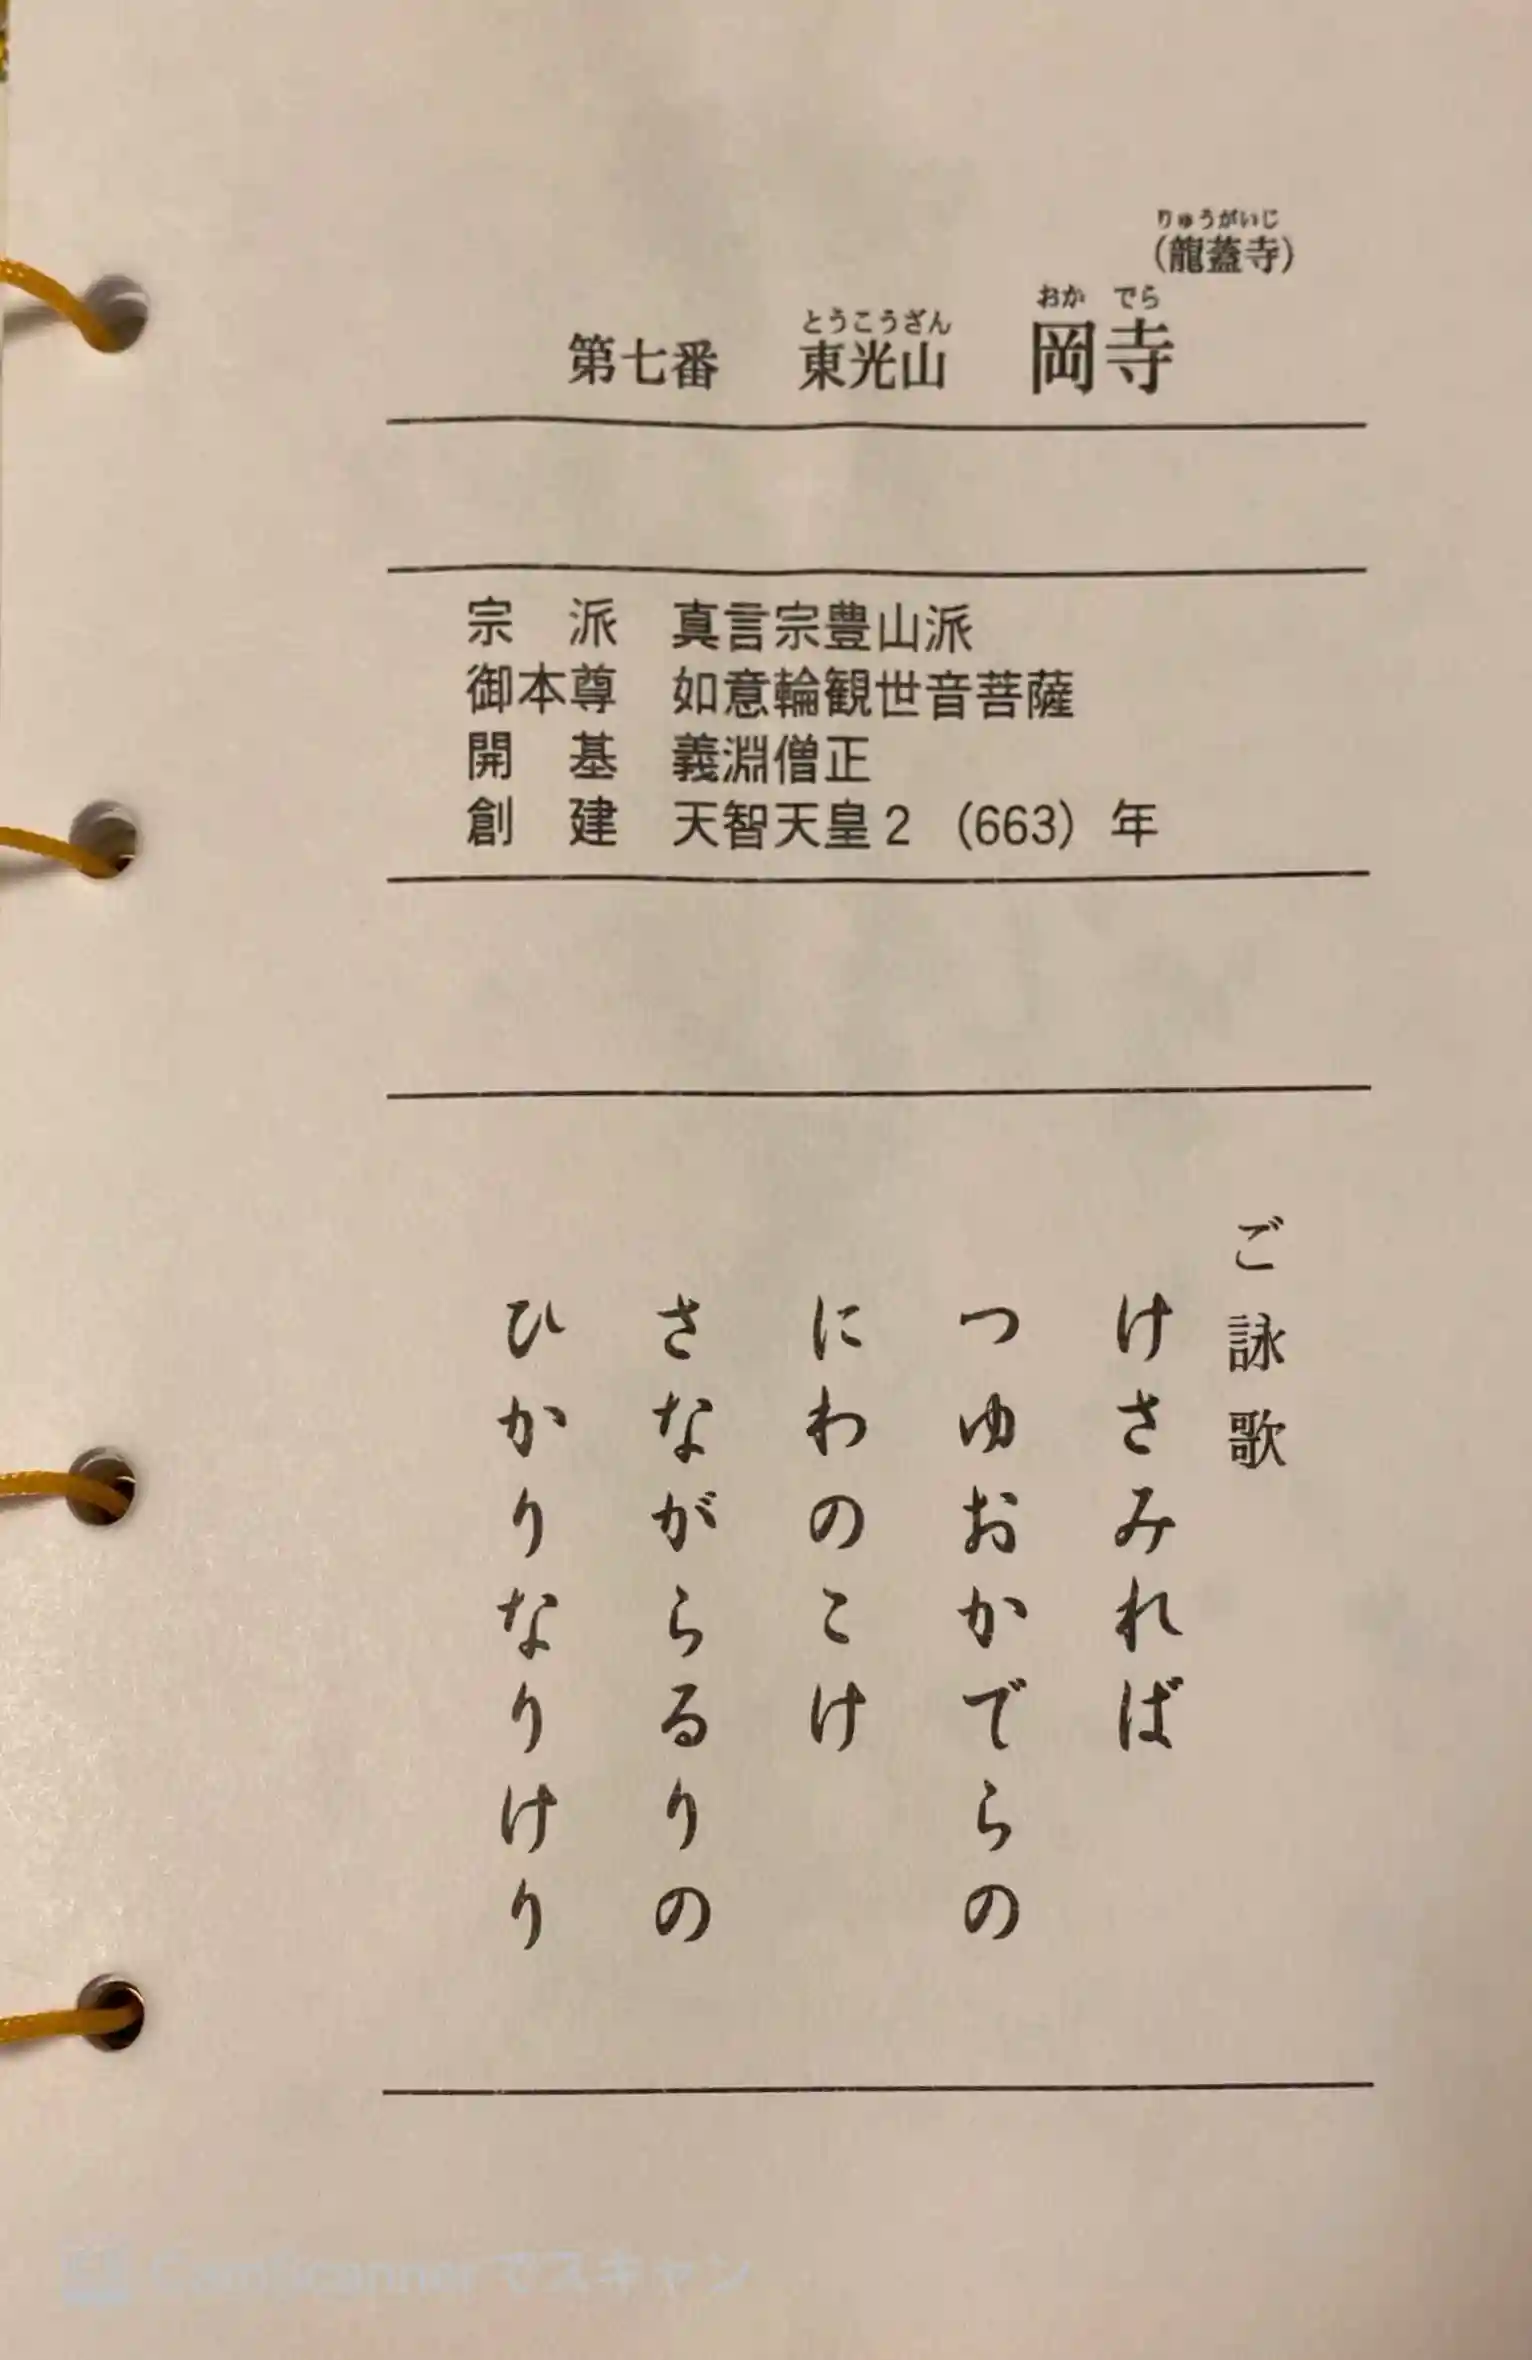 りゅうがいじ
(龍蓋寺)
おか でら
とうこうざん
第七番 東光山 岡寺
宗 派 真言宗豊山派
御本尊 如意輪観世音菩薩
開 基 義淵僧正
創 建 天智天皇2(663)年
ご詠歌
けさみれば
つゆおかでらの
にわのこけ
さながらるりの
ひかりなりけり
CamScannerでスキャン